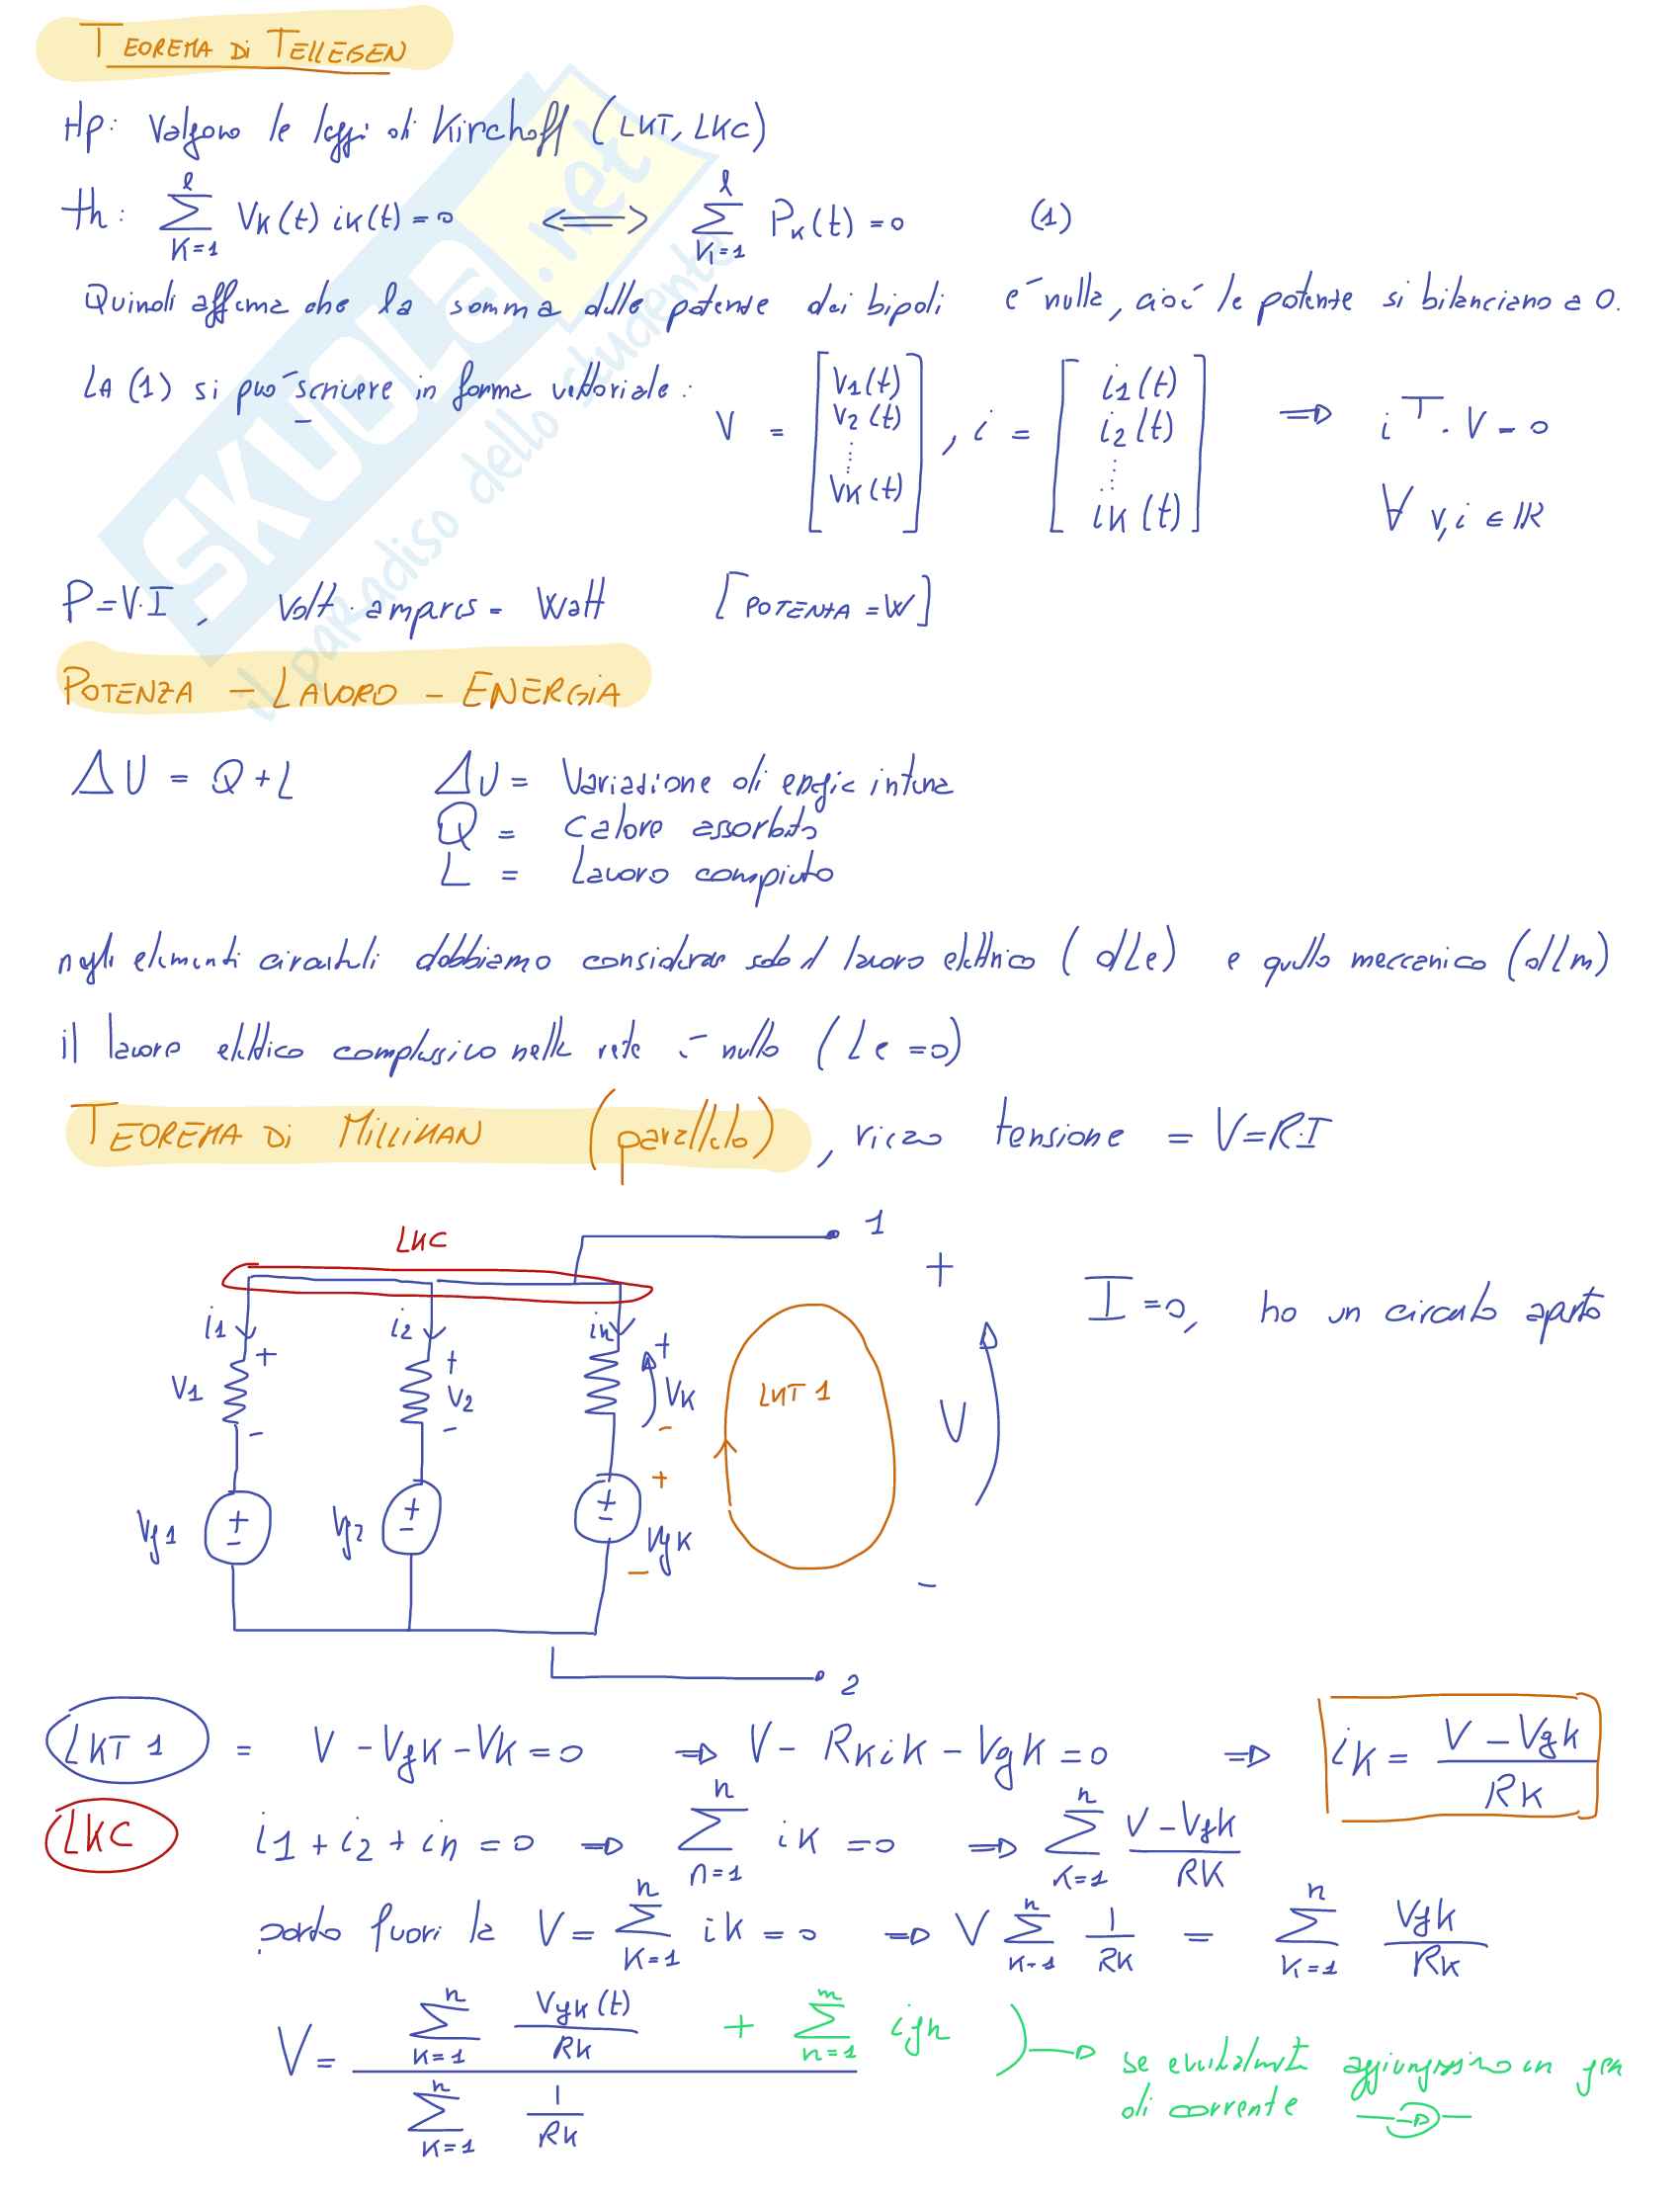 TEOREMA Di TELLEGEN
Hp: Valgono le leggi di Kirchoff (LKT, LKC)
th: ∑_{K=1}^{l} VK(t) iK(t) = 0 ⟺ ∑_{K=1}^{l} PK(t) = 0 (1)
Quindi afferma che la somma delle potenze dei bipoli e´ nulla, cioé le potenze si bilanciano a 0.
LA (1) si puo´ scrivere in forma vettoriale: V = [V1(t) V2(t) ⋮ VK(t)], i = [i1(t) i2(t) ⋮ iK(t)] ⇒ i^T · V = 0
∀ v,i ∈ ℝ
P=V·I, Volt · ampares = Watt [POTENZA = W]
POTENZA - LAVORO - ENERGiA
ΔU = Q + L ΔU = Variazione di energia interna
Q = Calore assorbito
L = Lavoro compiuto
negli elementi circuitali dobbiamo considerare solo il lavoro elettrico (dLe) e quello meccanico (dLm)
il lavoro elettrico complessivo nella rete é nullo (Le = 0)
TEOREMA Di MiLLiMAN (parallelo), ricavo tensione = V=R·I
LKC
1
+
I = 0, ho un circuito aperto
i1 i2 in
V1 + - + V2 - + VK -
LKT 1
V
Vg1 + - Vg2 + - + - + VgK -
-
2
LKT 1 = V - VgK - VK = 0 ⇒ V - RK iK - VgK = 0 ⇒ iK = (V - VgK)/RK
LKC i1 + i2 + in = 0 ⇒ ∑_{n=1}^{n} iK = 0 ⇒ ∑_{K=1}^{n} (V - VgK)/RK
porto fuori la V = ∑_{K=1}^{n} iK = 0 ⇒ V ∑_{K=1}^{n} 1/RK = ∑_{K=1}^{n} VgK/RK
V = (∑_{K=1}^{n} VgK(t)/RK + ∑_{n=1}^{m} ign) / (∑_{K=1}^{n} 1/RK)
se eventualmente aggiungessimo un gen
di corrente
SKUOLA.net
il paradiso dello studente